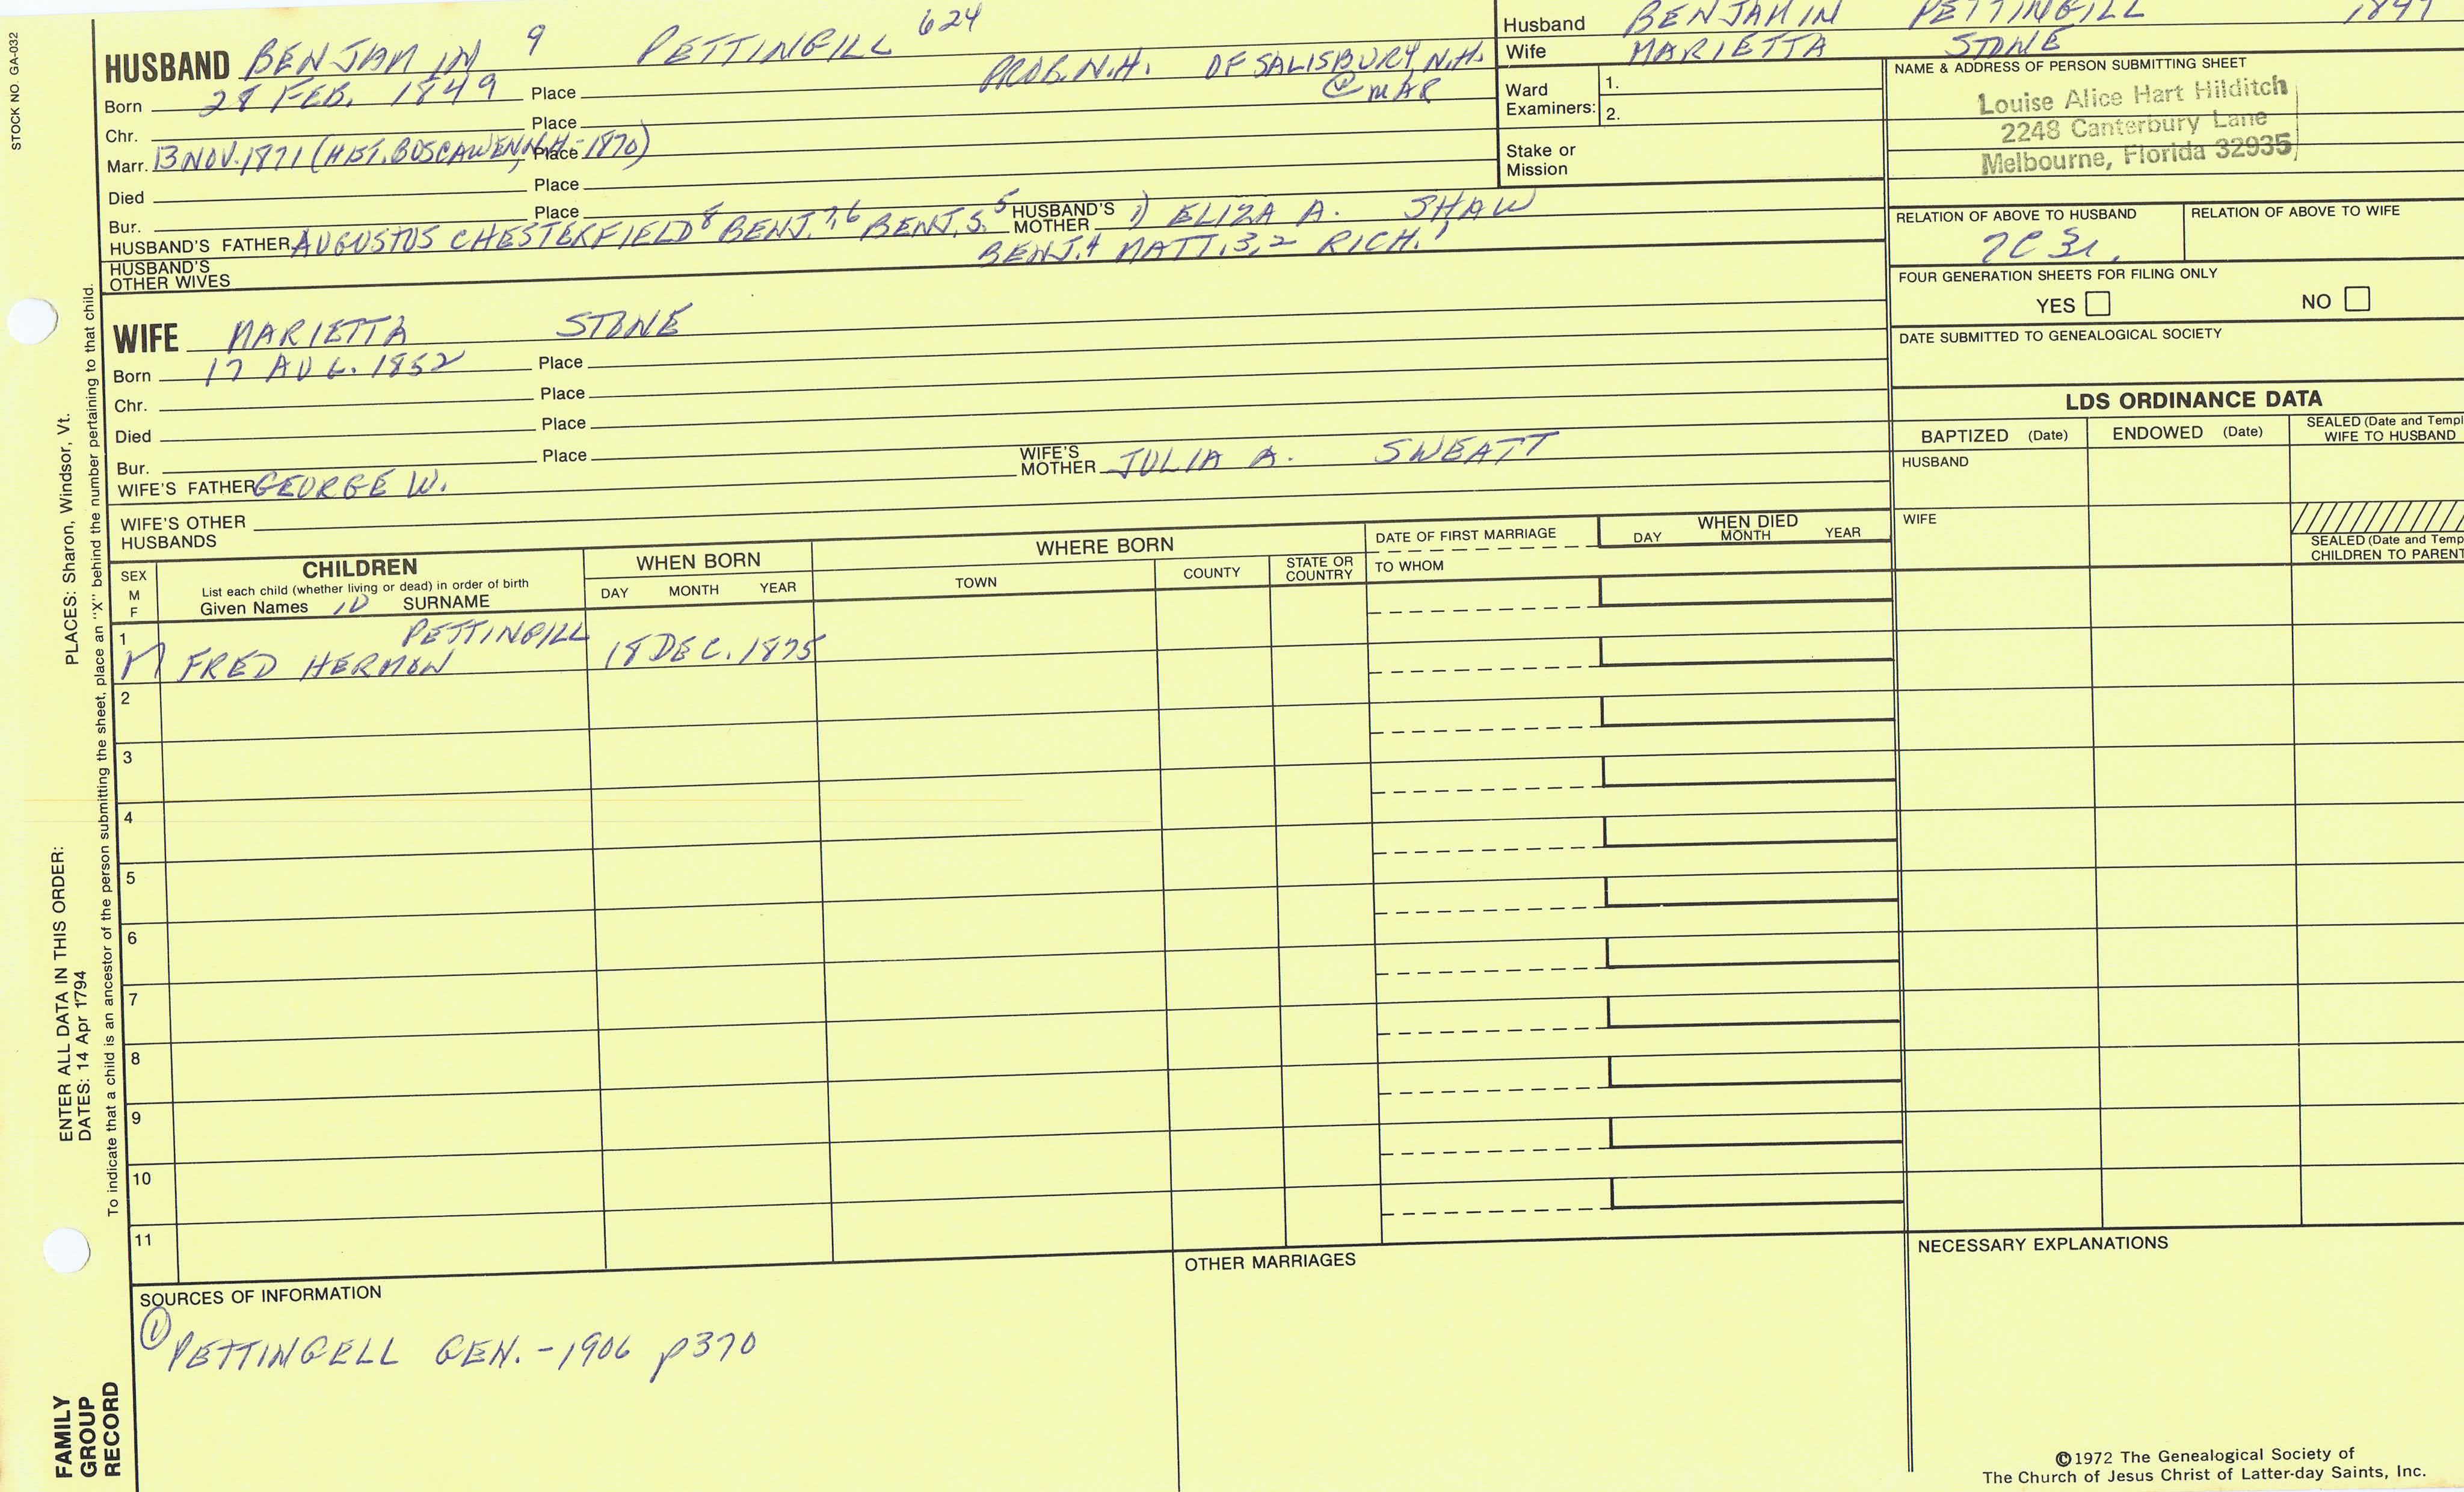 STOCK NO. GA-032
HUSBAND BENJAMIN 9 PETTINGILL 624
Born 28 FEB. 1849 Place PROB. N.H. OF SALISBURY N.H. @ MAR
Chr. Place
Marr. 13 NOV. 1871 (HIST. BOSCAWEN, N.H. - 1870) Place
Died Place
Bur. Place
HUSBAND'S FATHER AUGUSTUS CHESTERFIELD 8 BENJ. 7,6 BENJ. S. 5 HUSBAND'S MOTHER 1) ELIZA A. SHAW
BENJ. 4 MATT. 3,2 RICH. 1
HUSBAND'S OTHER WIVES
Husband BENJAMIN PETTINGILL 1849
Wife MARIETTA STONE
Ward Examiners: 1.
2.
Stake or Mission
NAME & ADDRESS OF PERSON SUBMITTING SHEET
Louise Alice Hart Hilditch
2248 Canterbury Lane
Melbourne, Florida 32935
RELATION OF ABOVE TO HUSBAND RELATION OF ABOVE TO WIFE
7C 3r.
FOUR GENERATION SHEETS FOR FILING ONLY
YES NO
DATE SUBMITTED TO GENEALOGICAL SOCIETY
WIFE MARIETTA STONE
Born 17 AUG. 1852 Place
Chr. Place
Died Place
Bur. Place
WIFE'S FATHER GEORGE W. WIFE'S MOTHER JULIA A. SWEATT
WIFE'S OTHER HUSBANDS
LDS ORDINANCE DATA
BAPTIZED (Date) ENDOWED (Date) SEALED (Date and Templ
WIFE TO HUSBAND
HUSBAND
WIFE
SEALED (Date and Temp
CHILDREN TO PARENT
SEX M F
CHILDREN
List each child (whether living or dead) in order of birth
Given Names 10 SURNAME
WHEN BORN
DAY MONTH YEAR
WHERE BORN
TOWN COUNTY STATE OR COUNTRY
DATE OF FIRST MARRIAGE
TO WHOM
WHEN DIED
DAY MONTH YEAR
1 PETTINGILL
M FRED HERMON 18 DEC. 1875
2
3
4
5
6
7
8
9
10
11
SOURCES OF INFORMATION
① PETTINGELL GEN. - 1906 p370
OTHER MARRIAGES
NECESSARY EXPLANATIONS
©1972 The Genealogical Society of
The Church of Jesus Christ of Latter-day Saints, Inc.
FAMILY GROUP RECORD
ENTER ALL DATA IN THIS ORDER:
DATES: 14 Apr 1794
PLACES: Sharon, Windsor, Vt.
To indicate that a child is an ancestor of the person submitting the sheet, place an "X" behind the number pertaining to that child.